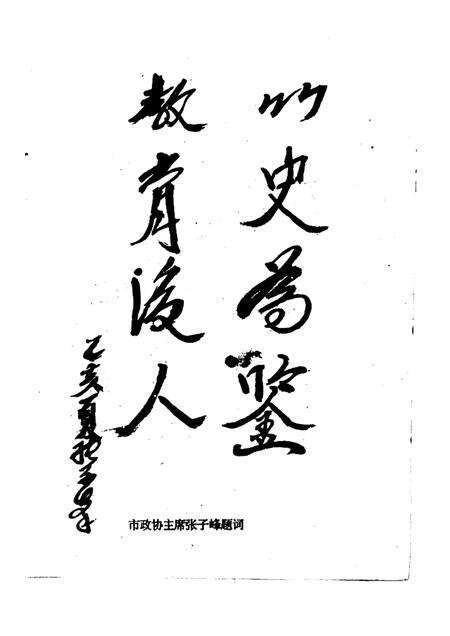 以史为鉴
教育后人
乙亥夏张子峰
市政协主席张子峰题词